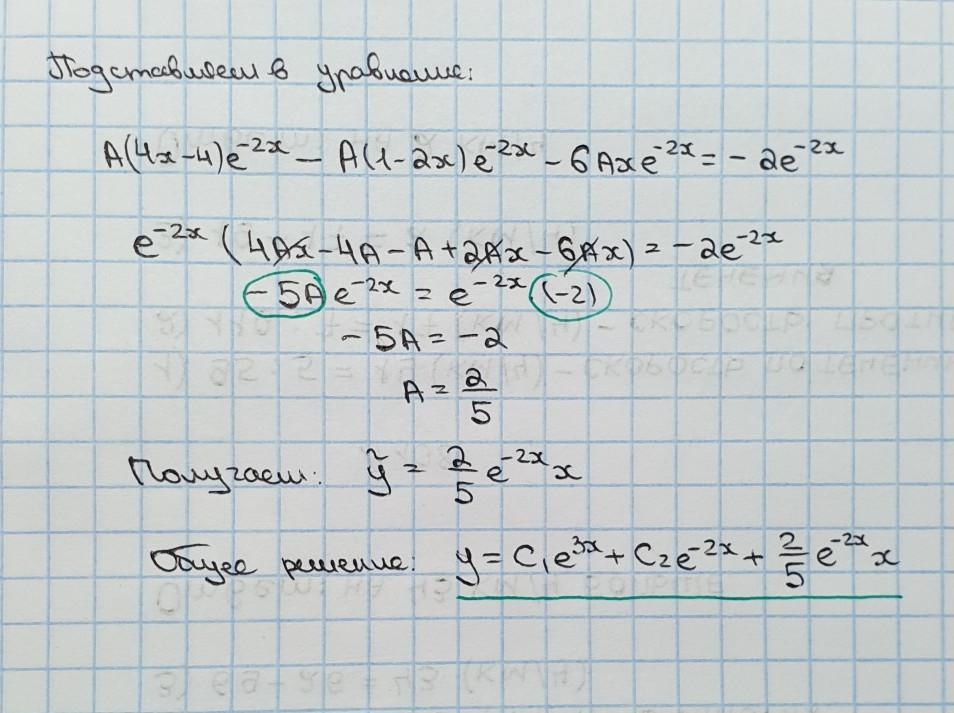 Подставляем в уравнение:
A(4x-4)e^{-2x} - A(1-2x)e^{-2x} - 6Axe^{-2x} = -2e^{-2x}
e^{-2x} (4Ax - 4A - A + 2Ax - 6Ax) = -2e^{-2x}
-5A e^{-2x} = e^{-2x} · (-2)
-5A = -2
A = \frac{2}{5}
Получаем: ỹ = \frac{2}{5} e^{-2x} x
Общее решение: y = C_1e^{3x} + C_2e^{-2x} + \frac{2}{5} e^{-2x} x